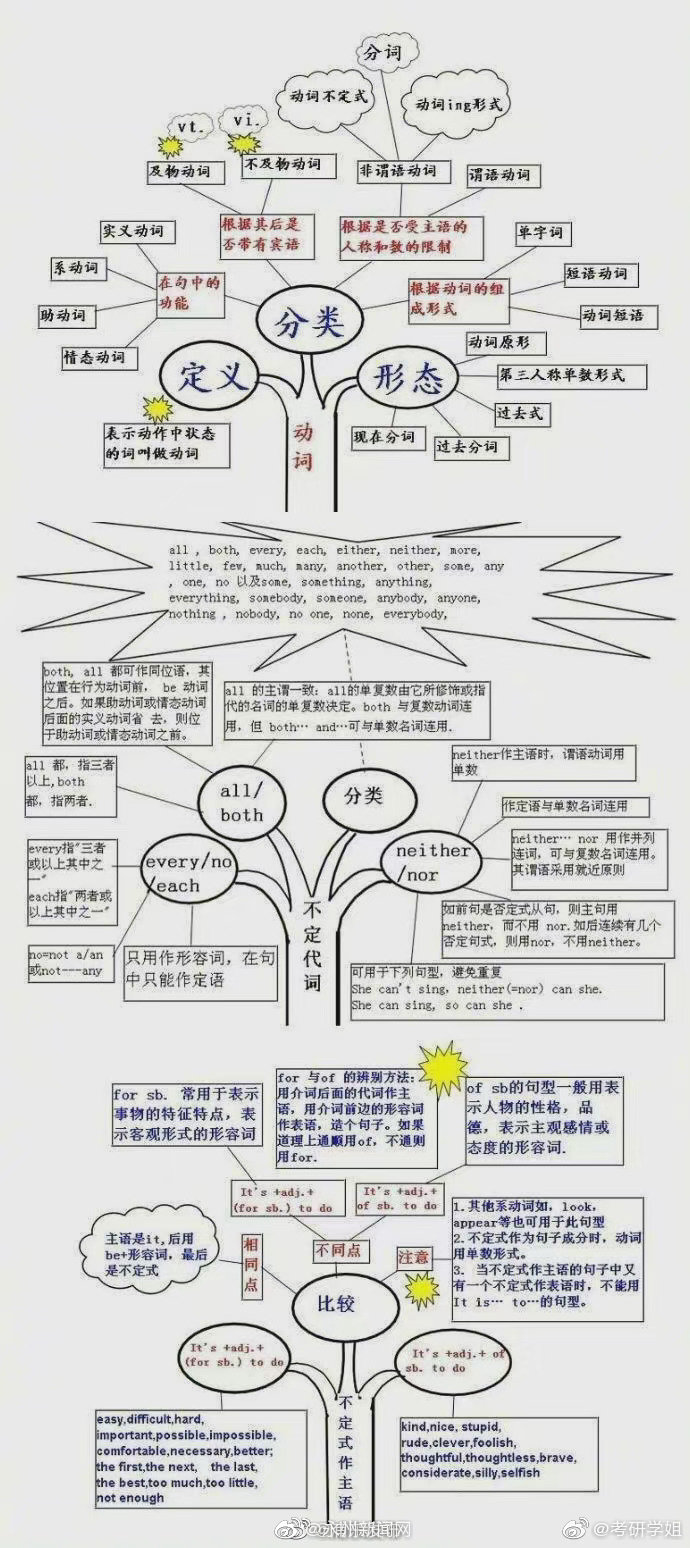 分词
动词不定式
动词ing形式
vt.
vi.
及物动词
不及物动词
非谓语动词
谓语动词
实义动词
系动词
助动词
情态动词
在句中的
功能
根据其后是
否带有宾语
根据是否受主语的
人称和数的限制
根据动词的组
成形式
单字词
短语动词
动词短语
分类
定义
形态
表示动作中状态
的词叫做动词
动词
动词原形
第三人称单数形式
过去式
过去分词
现在分词
all , both, every, each, either, neither, more,
little, few, much, many, another, other, some, any
, one, no 以及some, something, anything,
everything, somebody, someone, anybody, anyone,
nothing , nobody, no one, none, everybody,
both, all 都可作同位语，其
位置在行为动词前， be 动词
之后。如果助动词或情态动词
后面的实义动词省 去，则位
于助动词或情态动词之前。
all 的主谓一致：all的单复数由它所修饰或指
代的名词的单复数决定。both 与复数动词连
用，但 both… and…可与单数名词连用.
all 都，指三者
以上,both
都，指两者.
all/
both
分类
neither作主语时，谓语动词用
单数
作定语与单数名词连用
neither… nor 用作并列
连词，可与复数名词连用。
其谓语采用就近原则
neither
/nor
every指"三者
或以上其中之
一"
each指"两者或
以上其中之一"
every/no
/each
no=not a/an
或not---any
只用作形容词，在句
中只能作定语
不定代词
如前句是否定式从句，则主句用
neither，而不用 nor.如后连续有几个
否定句式，则用nor，不用neither。
可用于下列句型，避免重复
She can't sing, neither(=nor) can she.
She can sing, so can she .
for sb. 常用于表示
事物的特征特点，表
示客观形式的形容词
for 与of 的辨别方法：
用介词后面的代词作主
语，用介词前边的形容词
作表语，造个句子。如果
道理上通顺用of，不通则
用for.
of sb的句型一般用表
示人物的性格，品
德，表示主观感情或
态度的形容词.
It's +adj.+
(for sb.) to do
It's +adj.+
of sb. to do
主语是it,后用
be+形容词，最后
是不定式
相同点
不同点
注意
1.其他系动词如，look，
appear等也可用于此句型
2.不定式作为句子成分时，动词
用单数形式。
3. 当不定式作主语的句子中又
有一个不定式作表语时，不能用
It is… to…的句型。
比较
It's +adj.+
(for sb.) to do
It's +adj.+ of
sb. to do
不定式作主语
easy,difficult,hard,
important,possible,impossible,
comfortable,necessary,better;
the first,the next, the last,
the best,too much,too little,
not enough
kind,nice, stupid,
rude,clever,foolish,
thoughtful,thoughtless,brave,
considerate,silly,selfish
@考研学姐